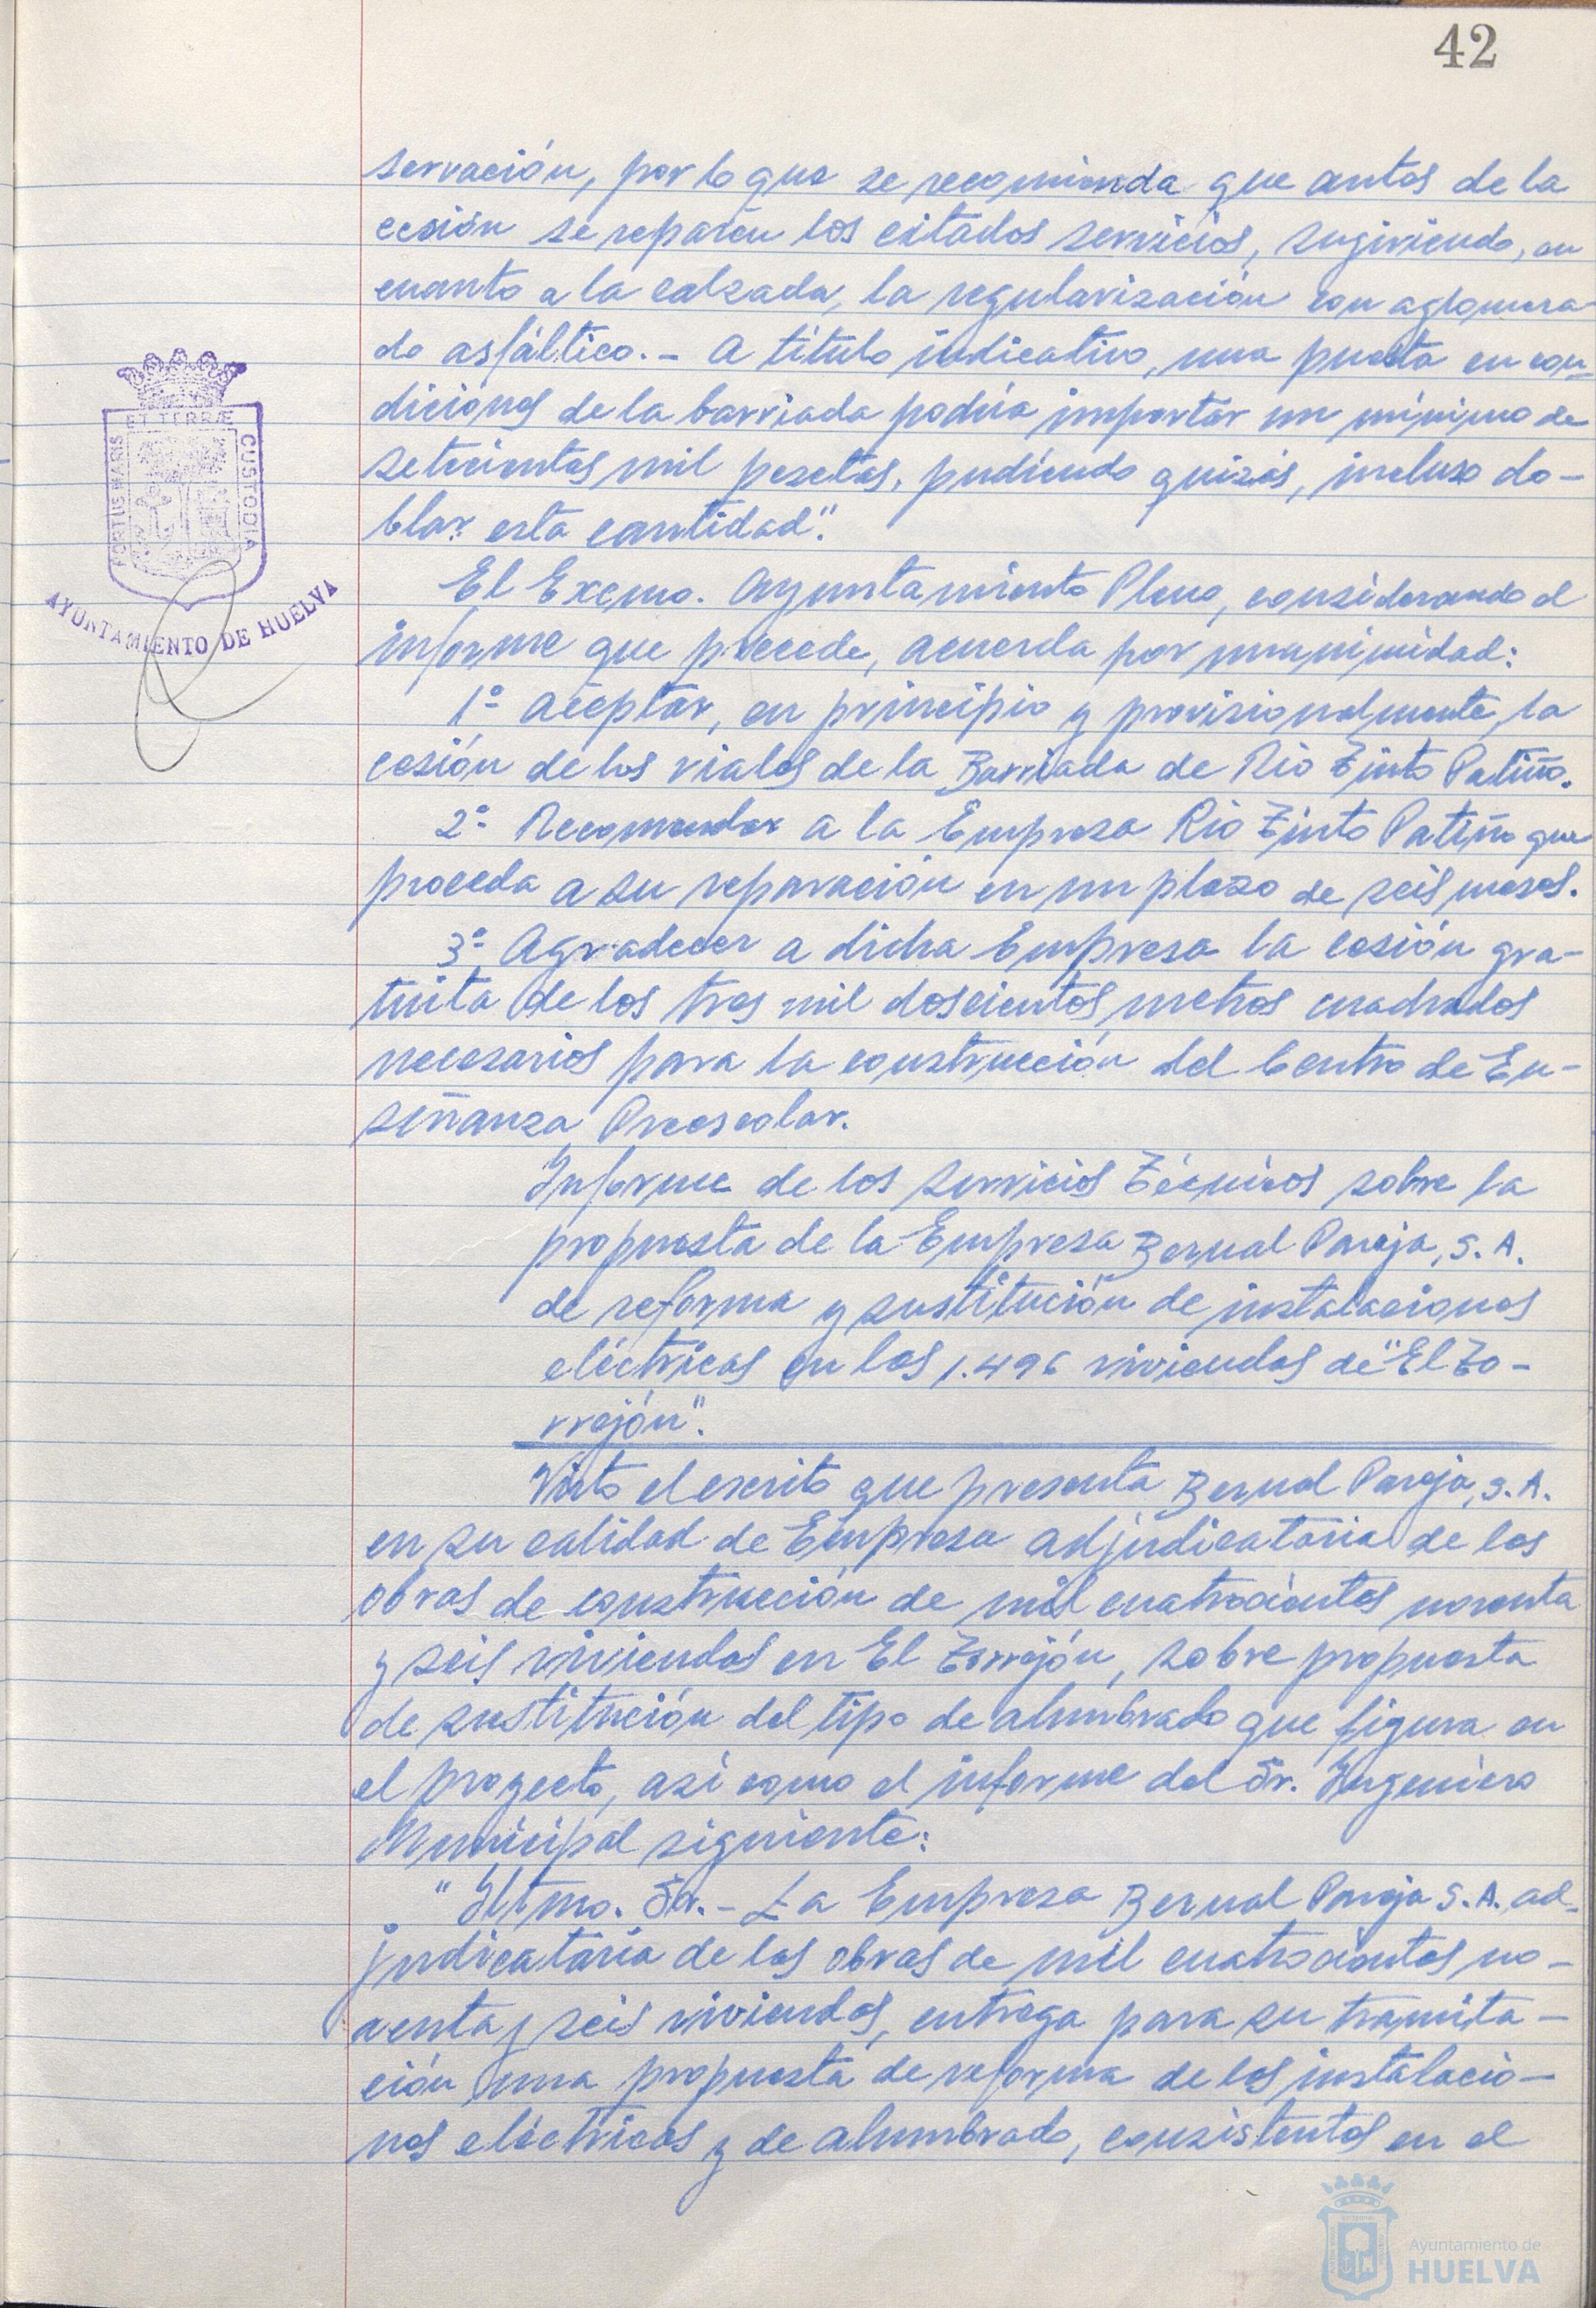 42
servación, por lo que se recomienda que antes de la
cesión se reparen los citados servicios, sugiriendo, en
cuanto a la calzada, la regularización con aglomera
do asfáltico.- A título indicativo, una puesta en con-
diciones de la barriada podría importar un mínimo de
setecientas mil pesetas, pudiendo quizás, incluso do-
blar esta cantidad".
El Excmo. Ayuntamiento Pleno, considerando el
informe que precede, acuerda por unanimidad:
1º Aceptar, en principio y provisionalmente, la
cesión de los viales de la Barriada de Rio Tinto Patiño.
2º Recomendar a la Empresa Rio Tinto Patiño que
proceda a su reparación en un plazo de seis meses.
3º Agradecer a dicha Empresa la cesión gra-
tuita de los tres mil doscientos metros cuadrados
necesarios para la construcción del Centro de En-
señanza Preescolar.
Informe de los Servicios Técnicos sobre la
propuesta de la Empresa Bernal Pareja, S.A.
de reforma y sustitución de instalaciones
eléctricas en las 1.496 viviendas de "El To-
rrejón".
Visto el escrito que presenta Bernal Pareja, S.A.
en su calidad de Empresa adjudicataria de las
obras de construcción de mil cuatrocientas noventa
y seis viviendas en El Torrejón, sobre propuesta
de sustitución del tipo de alumbrado que figura en
el proyecto, así como el informe del Sr. Ingeniero
Municipal siguiente:
"Iltmo. Sr.- La Empresa Bernal Pareja S.A. ad-
judicataria de las obras de mil cuatrocientas no-
venta y seis viviendas, entrega para su tramita-
ción una propuesta de reforma de las instalacio-
nes eléctricas y de alumbrado, consistentes en el
PORTUS MARIS
ET TERRÆ
CUSTODIA
AYUNTAMIENTO DE HUELVA
Ayuntamiento de
HUELVA